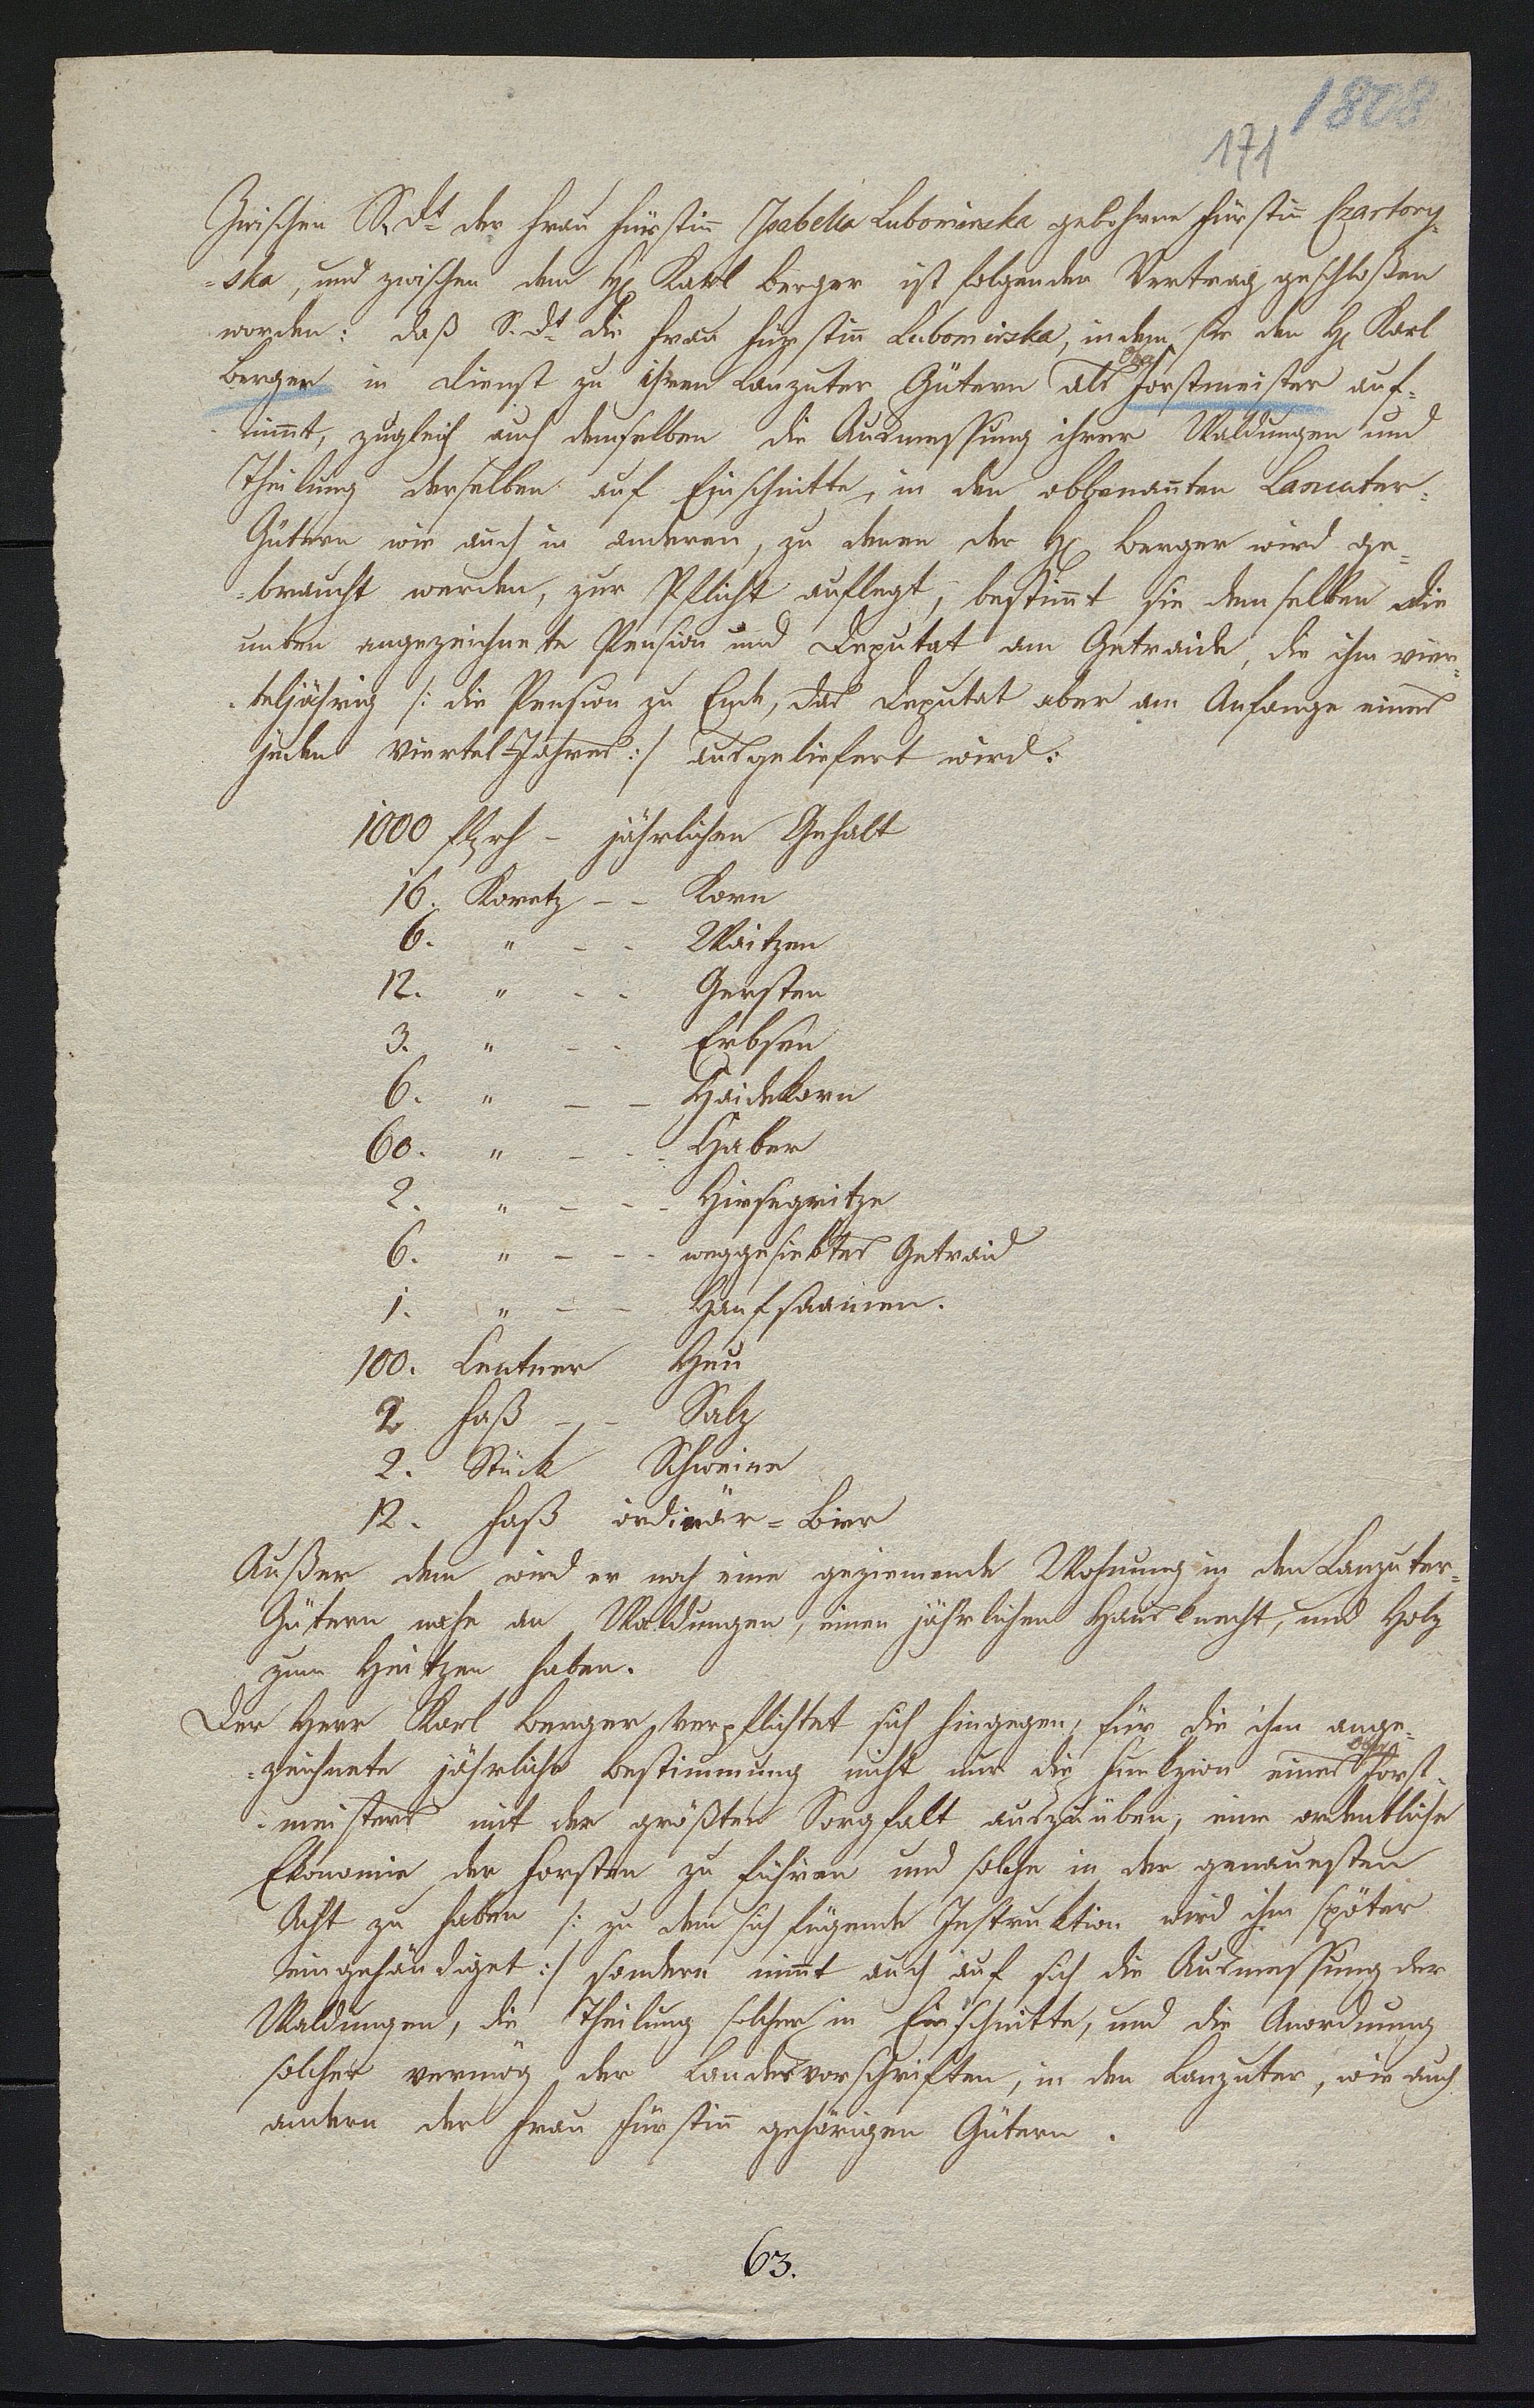 1808
171
Zwischen S. Dt der Frau Fürstin Isabella Lubomirska gebohrne Fürstin Czartory-
-ska, und zwischen dem H. Karl Berger ist folgender Vertrag geschloßen
worden: daß S. Dt die Frau Fürstin Lubomirska, indem sie den H. Karl
Ober
Berger in Dienst zu ihren Lanzuter Gütern als Forstmeister auf-
nimmt, zugleich auch demselben die Ausmessung ihrer Waldungen und
Theilung derselben auf Einschnitte, in den obbenannten Lancuter-
Gütern wie auch in anderen, zu denen der H. Berger wird ge-
-braucht werden, zur Pflicht auflegt; bestimmt sie demselben die
unten angezeichnete Pension und Deputat am Getraide, die ihm vier-
-teljährig /: die Pension zu Ende, das Deputat aber am Anfange eines
jeden Viertel-Jahres :/ ausgeliefert wird:
1000 fl rh - jährlichen Gehalt
16. Koretz - - Korn
6. " - - Waitzen
12. " - - Gersten
3. " - - Erbsen
6. " - - Haidekorn
60. " - - - Haber
2. " - - - Hirsegritze
6. " - - - weggesiebtes Getraid
1. " - - Hanfsaamen.
100. Centner Heu
2 Faß - - Salz
2. Stück Schweine
12. Faß ordinär-Bier
Außer dem wird er noch eine geziemende Wohnung in den Lanzuter-
Gütern nahe an Waldungen, einen jährlichen Hausknecht, und Holz
zum Heitzen haben.
Der Herr Karl Berger verpflichtet sich hingegen, für die ihm ange-
Ober
-zeichnete jährliche Bestimmung nicht nur die Funkzion eines Forst-
-meisters mit der größten Sorgfalt auszuüben, eine ordentliche
Ekonomie der Forsten zu führen und solche in der genauesten
Acht zu haben /: zu dem sich fügende Instruktion wird ihm später
eingehändiget :/ sondern nimmt auch auf sich die Ausmessung der
Waldungen, die Theilung solcher in Einschnitte, und die Anordnung
solcher vermög der Landesvorschriften, in den Lanzuter, wie auch
andern der Frau Fürstin gehörigen Gütern.
63.